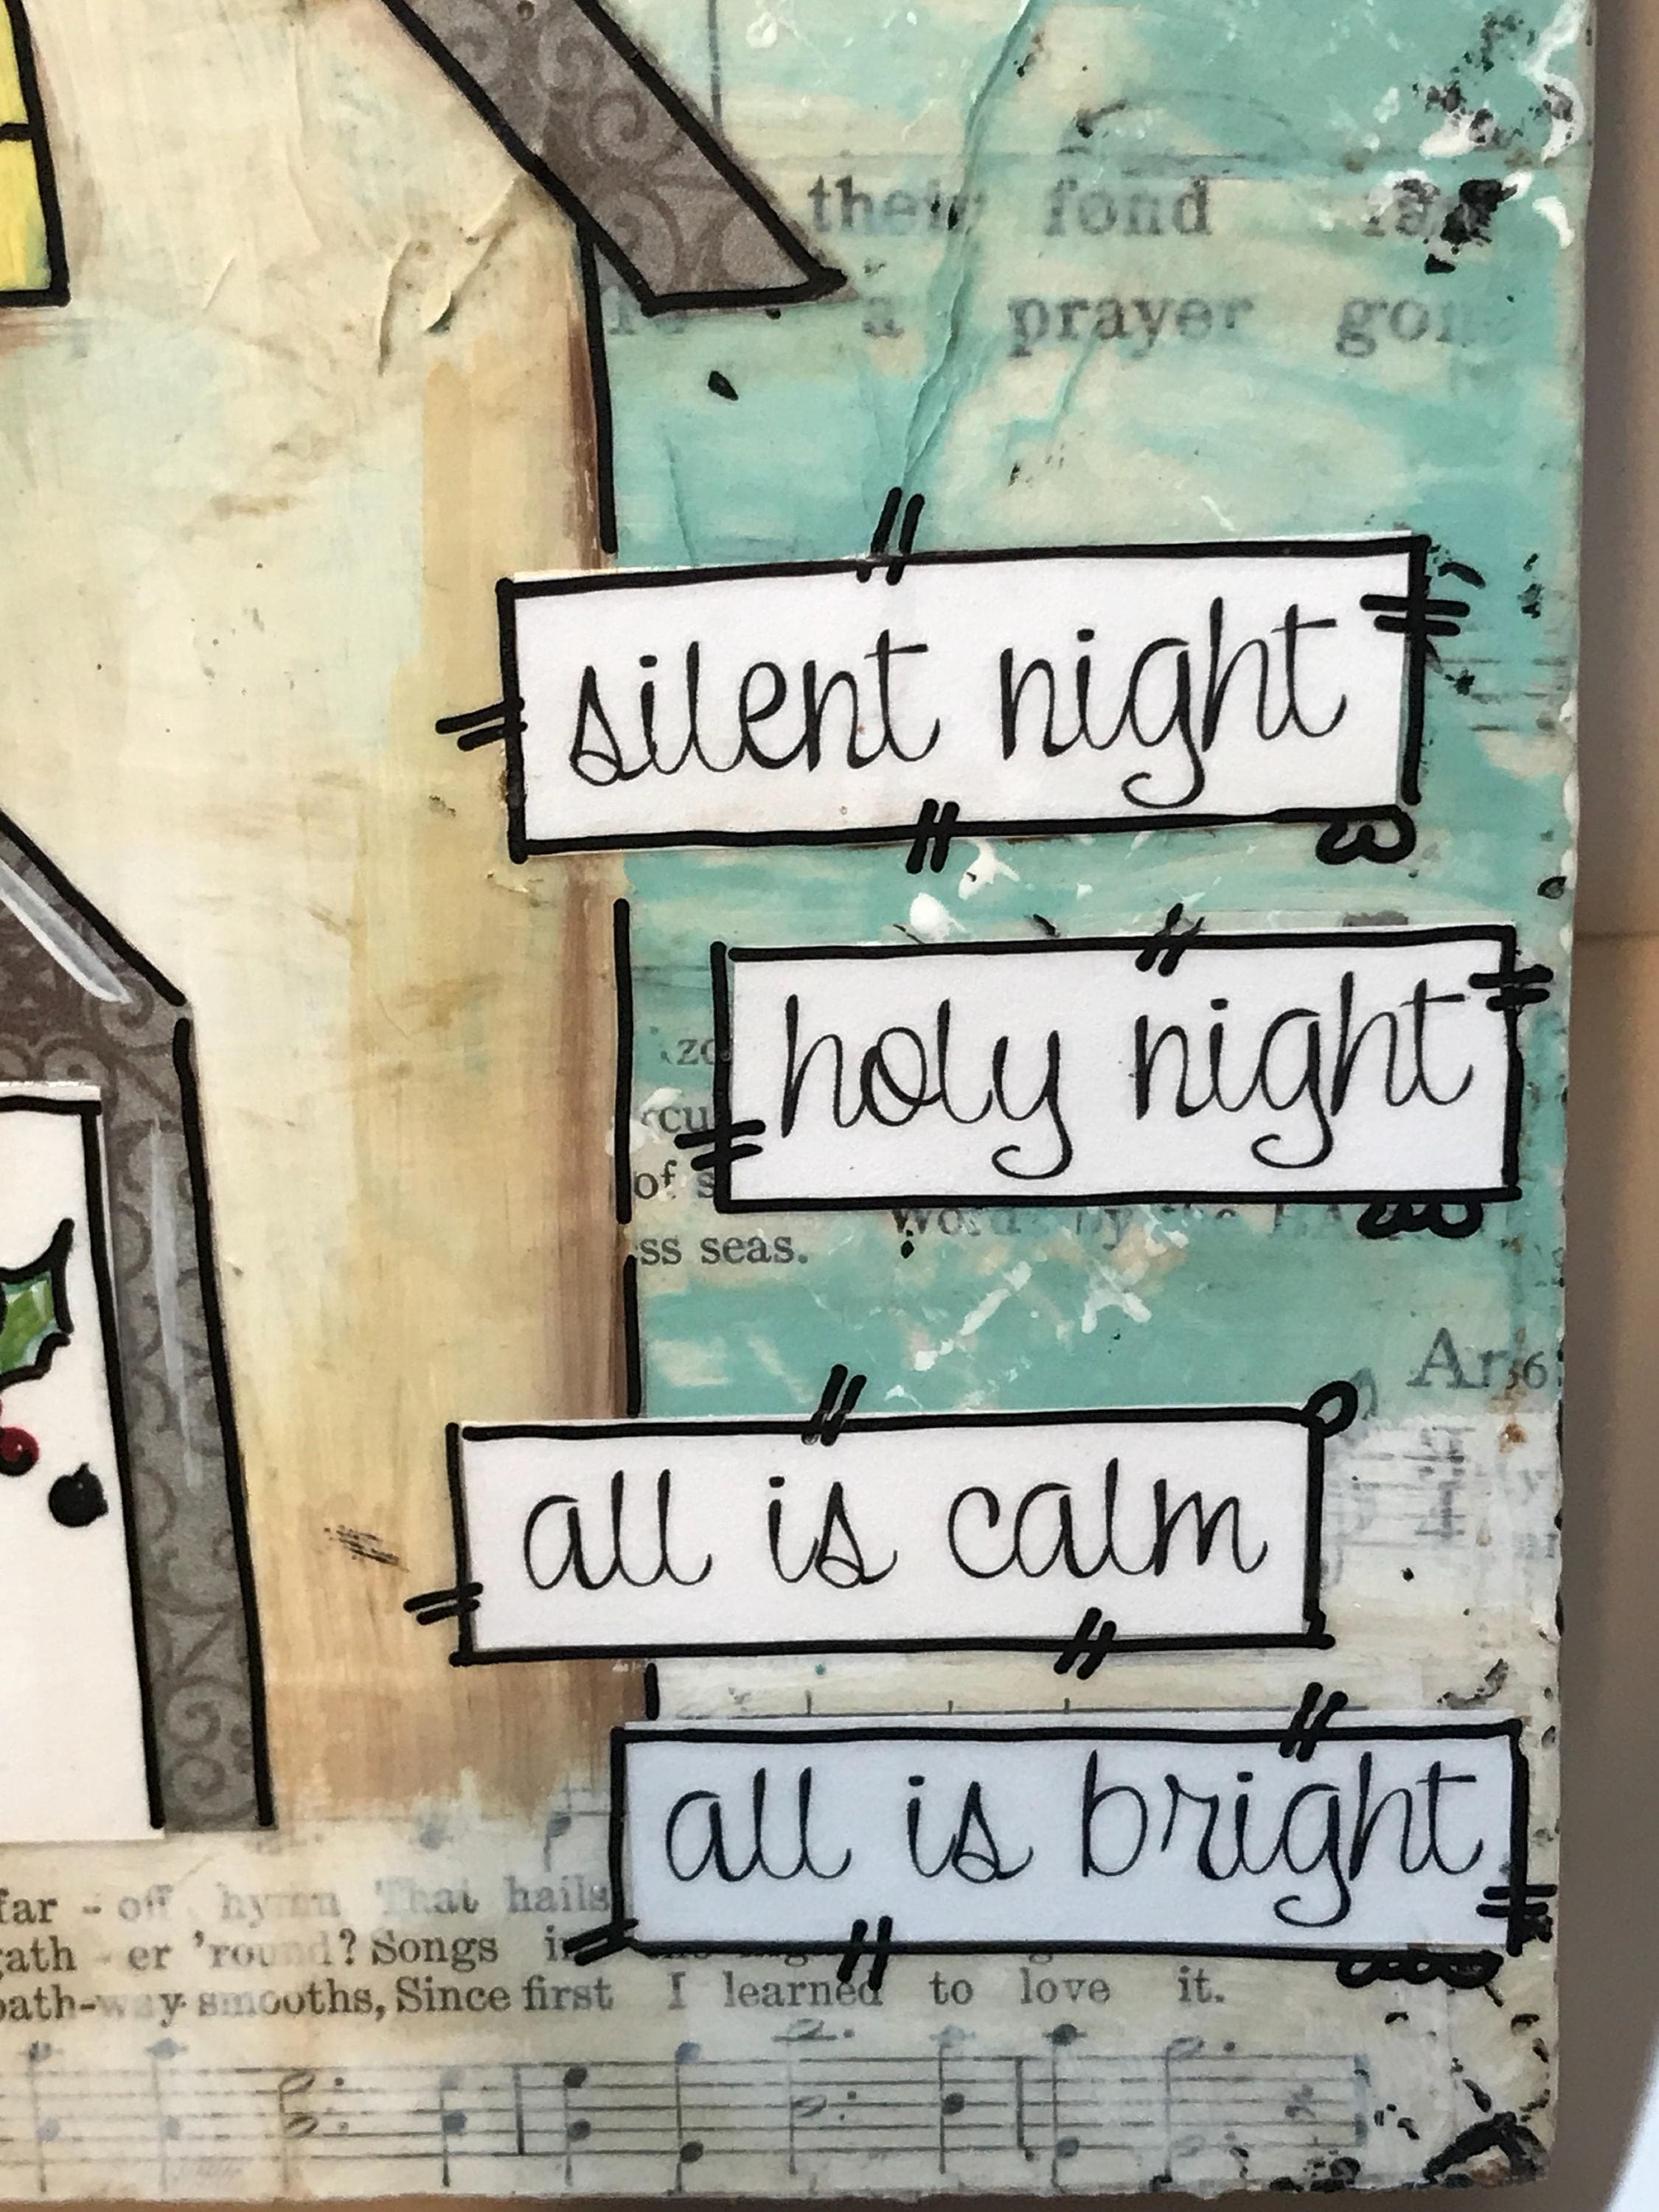 their fond
a prayer
silent night
holy night
of s
ss seas.
Words by the
all is calm
all is bright
far - off hymn That hails
er 'round? Songs
smooths, Since first I learned to love it.